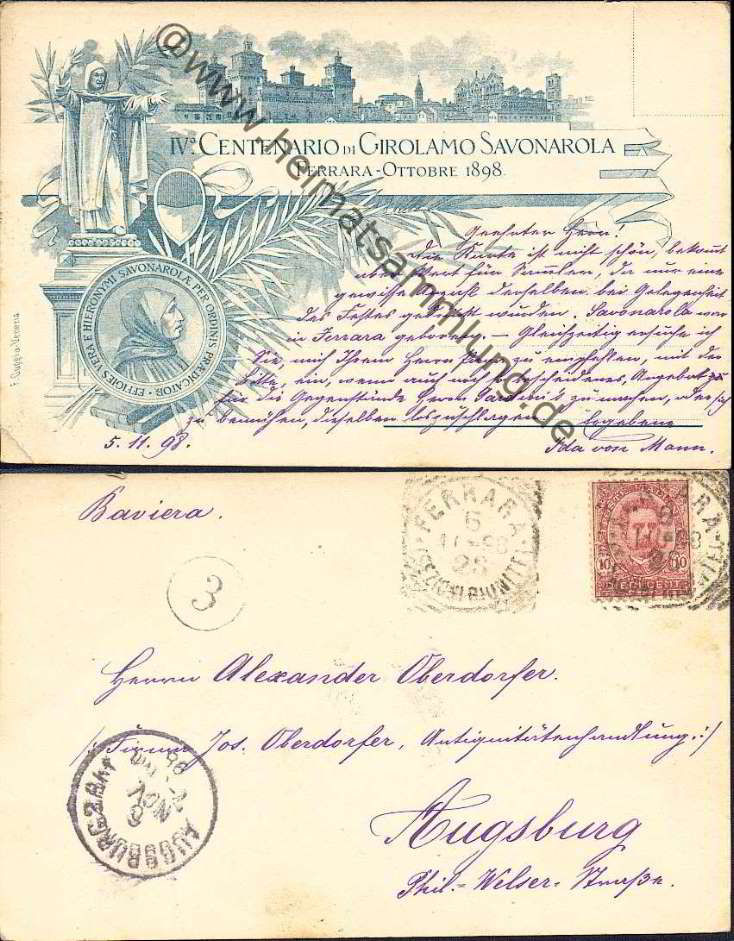 @www.heimatsammlung.de
IVº. CENTENARIO DI GIROLAMO SAVONAROLA
FERRARA - OTTOBRE 1898.
EFFIGIES VERA E HIERONYMI SAVONAROLÆ PER ORDINIS PRÆDICATOR
Geehrter Herr!
Die Karte ist nicht schön, bekommt
aber Wert für Sammler, da nur eine
gewisse Anzahl derselben bei Gelegenheit
des Festes gedruckt wurden. Savonarola war
in Ferrara geboren. — Gleichzeitig ersuche ich
Sie mich Ihrem Herrn zu empfehlen, mit der
Bitte, ein, wenn auch noch bescheidenes, Angebot
für die Gegenstände Herrn zu machen, oder sich
zu bemühen, dieselben loszuschlagen. Ergebene
5.11.98. Ida von Mann.
Baviera.
FERRARA
6
11-98
3
10 10
DIECI CENT
Herrn Alexander Oberdorfer.
Firma Jos. Oberdorfer, Antiquitätenhandlung :/
AUGSBURG 2 Bhf
NOV
98
Augsburg
Phil.-Welser-Straße.